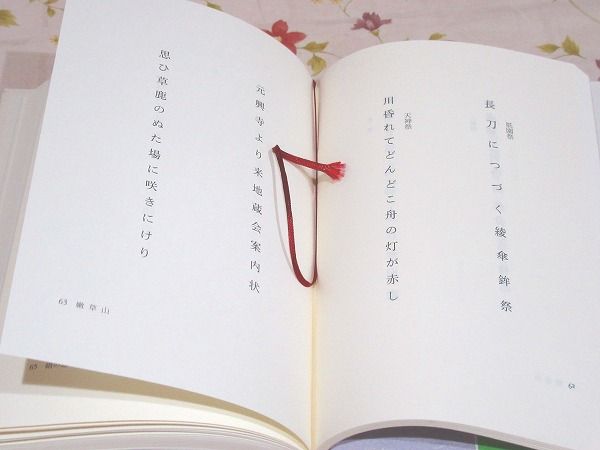 祇園祭
長刀につづく綾傘鉾祭
天神祭
川昏れてどんどこ舟の灯が赤し
62
元興寺より来地蔵会案内状
思ひ草鹿のぬた場に咲きにけり
63 嫩草山
65